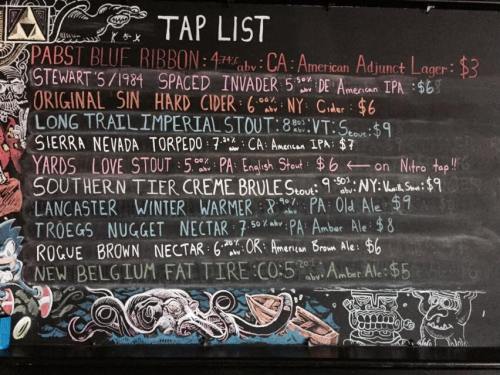 TAP LIST
PABST BLUE RIBBON: 4.74% abv: CA: American Adjunct Lager: $3
STEWART'S/1984 SPACED INVADER: 5.50% abv: DE: American IPA: $6
ORIGINAL SIN HARD CIDER: 6.00% abv: NY: Cider: $6
LONG TRAIL IMPERIAL STOUT: 8.80% abv: VT: Stout: $9
SIERRA NEVADA TORPEDO: 7.20% abv: CA: American IPA: $7
YARDS LOVE STOUT: 5.00% abv: PA: English Stout: $6 ← on Nitro tap!!
SOUTHERN TIER CREME BRULE Stout: 9.50% abv: NY: Vanilla Stout: $9
LANCASTER WINTER WARMER: 8.90% abv: PA: Old Ale: $9
TROEGS NUGGET NECTAR: 7.50% abv: PA: Amber Ale: $8
ROGUE BROWN NECTAR: 6.20% abv: OR: American Brown Ale: $6
NEW BELGIUM FAT TIRE: CO: 5.20% abv: Amber Ale: $5